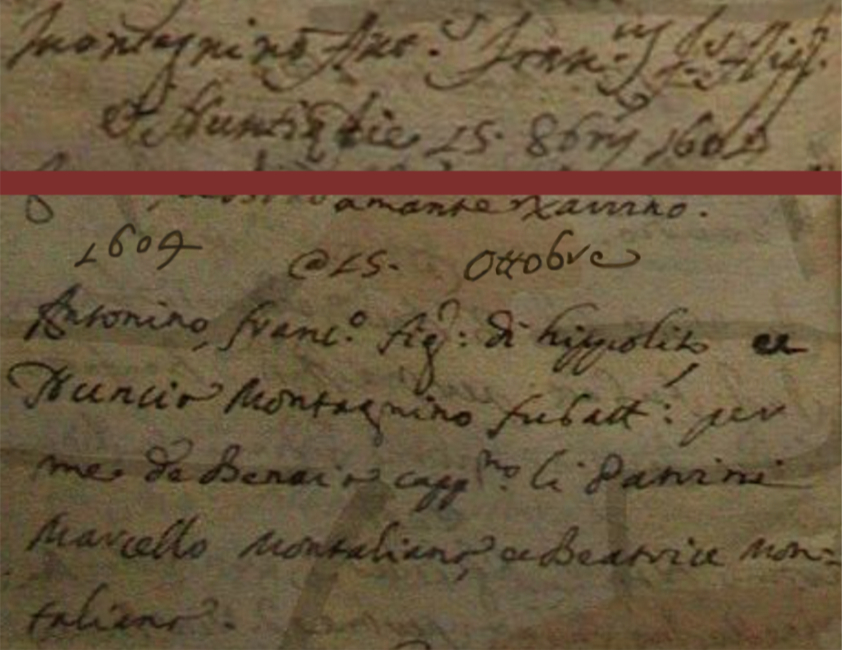 Montagnino Anto. Fran.cus f. Hip.
et Nuntiatae 15. 8bris 1604
amante
1604 @ 15. Ottobre
Antonino, franc.o fig: di hippolito et
Nuncia Montagnino fu batt: per
me de Benai capp.no li Patrini
Marcello Montaliano, et Beatrice Mon=
taliano.